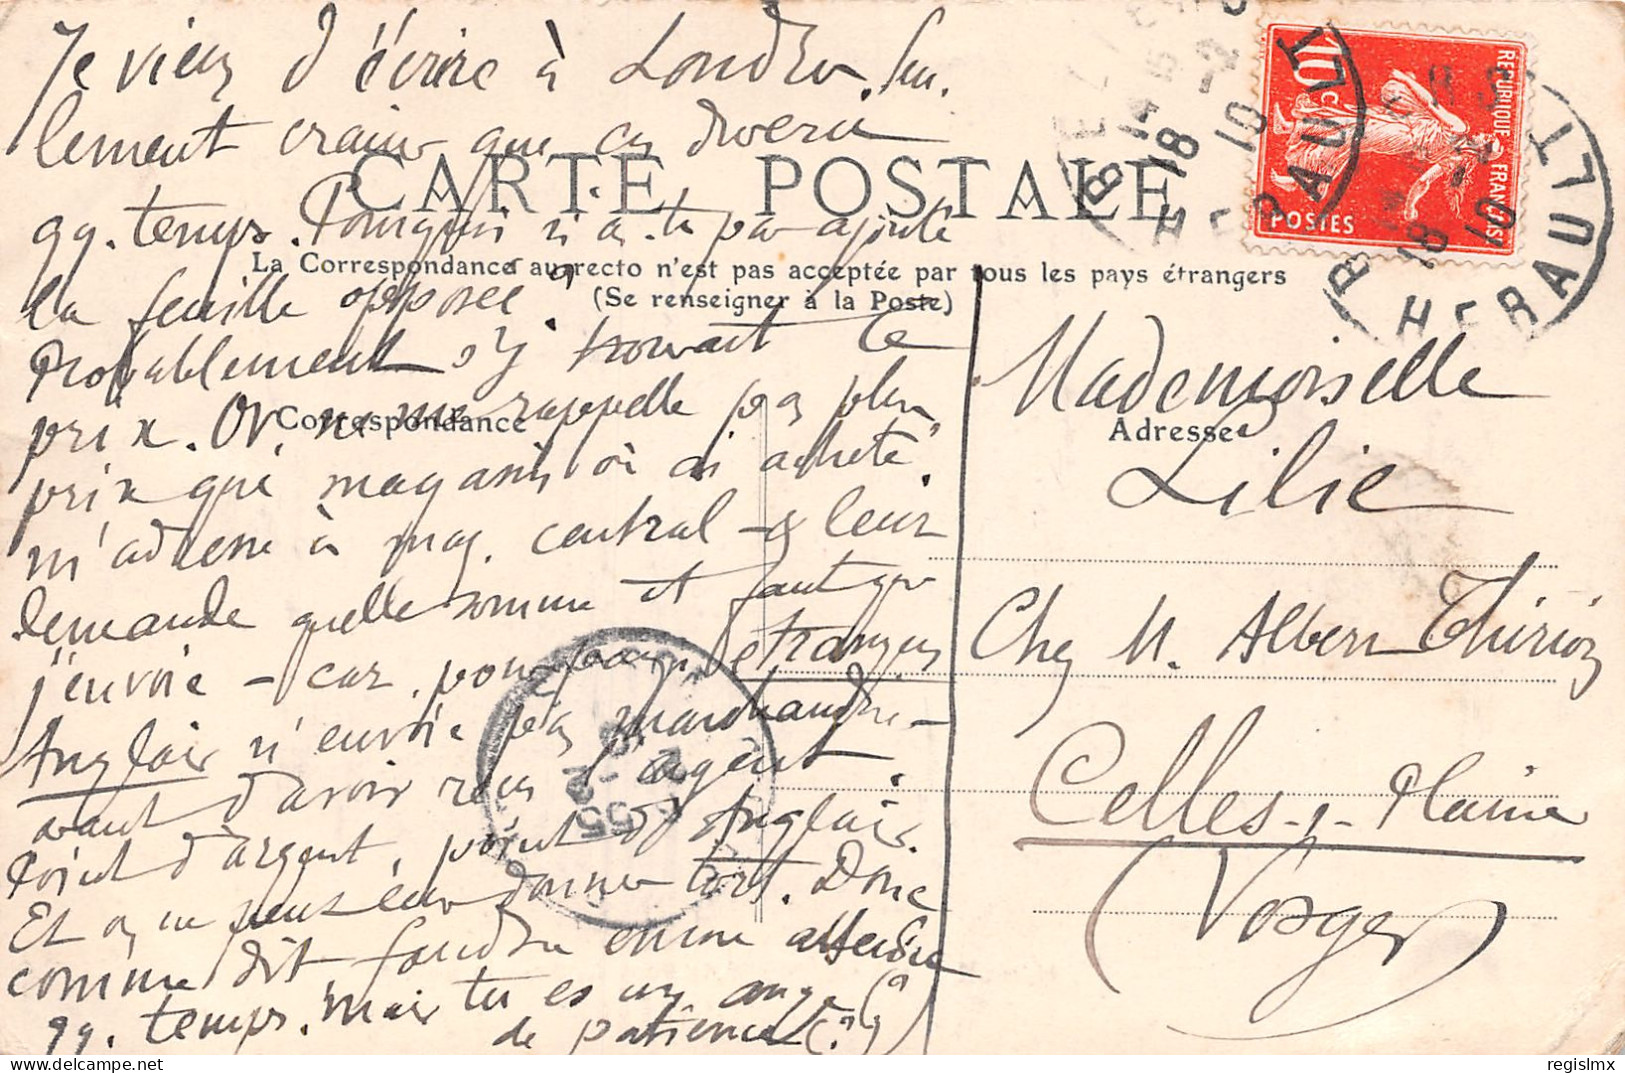 Je viens d'écrire à Londres. Seu-
lement crains que ça durera
qq. temps. Pourquoi n'as-tu pas ajouté
la feuille opposée ?
Probablement s'y trouvait le
prix. Or, ne me rappelle pas plus
prix que magasin où ai acheté.
m'adresse à mag. central – & leur
demande quelle somme il faut que
j'envoie – car, pour pays étrangers
Anglais n'envoie pas marchandise
avant d'avoir reçu l'argent.
Point d'argent, point d'Anglais.
Et on ne peut leur donner tort. Donc
comme dit faudra encore attendre
qq. temps. Mais tu es un ange
de patience (?)
CARTE POSTALE
La Correspondance au recto n'est pas acceptée par tous les pays étrangers
(Se renseigner à la Poste)
Correspondance
Adresse
Mademoiselle
Lilie
Chez M. Albert Thirion
Celles-s-Plaine
Vosges
REPUBLIQUE FRANÇAISE
10c
POSTES
BEZIERS
18 -2 10
HERAULT
18 -2 10
HERAULT
regislmx